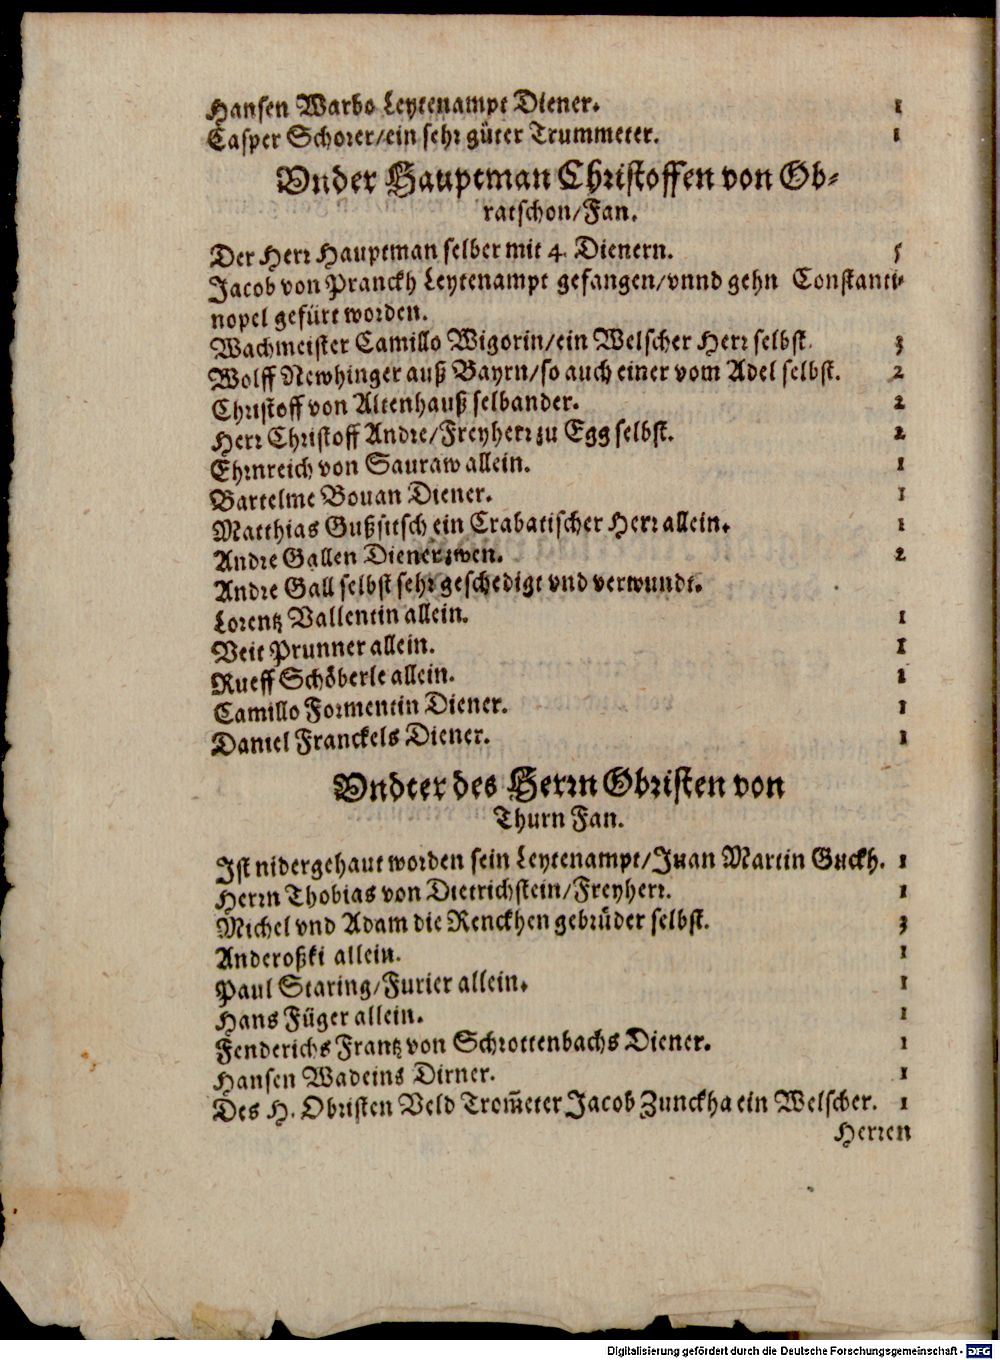 Hansen Warbo Leytenampt Diener. 1
Casper Schorer/ein sehr güter Trummeter. 1
Vnder Hauptman Christoffen von Ob⸗
ratschon/Fan.
Der Herr Hauptman selber mit 4. Dienern. 5
Jacob von Pranckh Leytenampt gefangen/vnnd gehn Constanti⸗
nopel gefürt worden.
Wachmeister Camillo Wigorin/ein Welscher Herr selbst. 3
Wolff Newhinger auß Bayrn/so auch einer vom Adel selbst. 2
Christoff von Altenhauß selbander. 2
Herr Christoff Andre/Freyherr zu Egg selbst. 2
Ehrnreich von Sauraw allein. 1
Bartelme Bouan Diener. 1
Matthias Gußsitsch ein Crabatischer Herr allein. 1
Andre Gallen Diener zwen. 2
Andre Gall selbst sehr geschedigt vnd verwundt.
Lorentz Vallentin allein. 1
Veit Prunner allein. 1
Rueff Schöberle allein. 1
Camillo Formentin Diener. 1
Daniel Franckels Diener. 1
Vndter des Herrn Obristen von
Thurn Fan.
Ist nidergehaut worden sein Leytenampt/Juan Martin Guckh. 1
Herrn Thobias von Dietrichstein/Freyherr. 1
Michel vnd Adam die Renckhen gebrüder selbst. 3
Anderoßki allein. 1
Paul Staring/Furier allein. 1
Hans Füger allein. 1
Fenderichs Frantz von Schrottenbachs Diener. 1
Hansen Wadeins Dirner. 1
Des H. Obristen Veld Trom̃eter Jacob Zunckha ein Welscher. 1
Herren
Digitalisierung gefördert durch die Deutsche Forschungsgemeinschaft - DFG